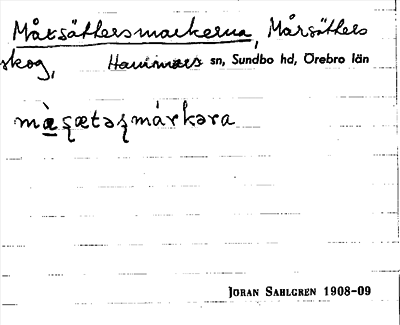 Mårsäthersmarkerna, Mårsäthers
skog, Hammars sn, Sundbo hd, Örebro län
mæ̀ʂætəʂmárkəra
JORAN SAHLGREN 1908-09